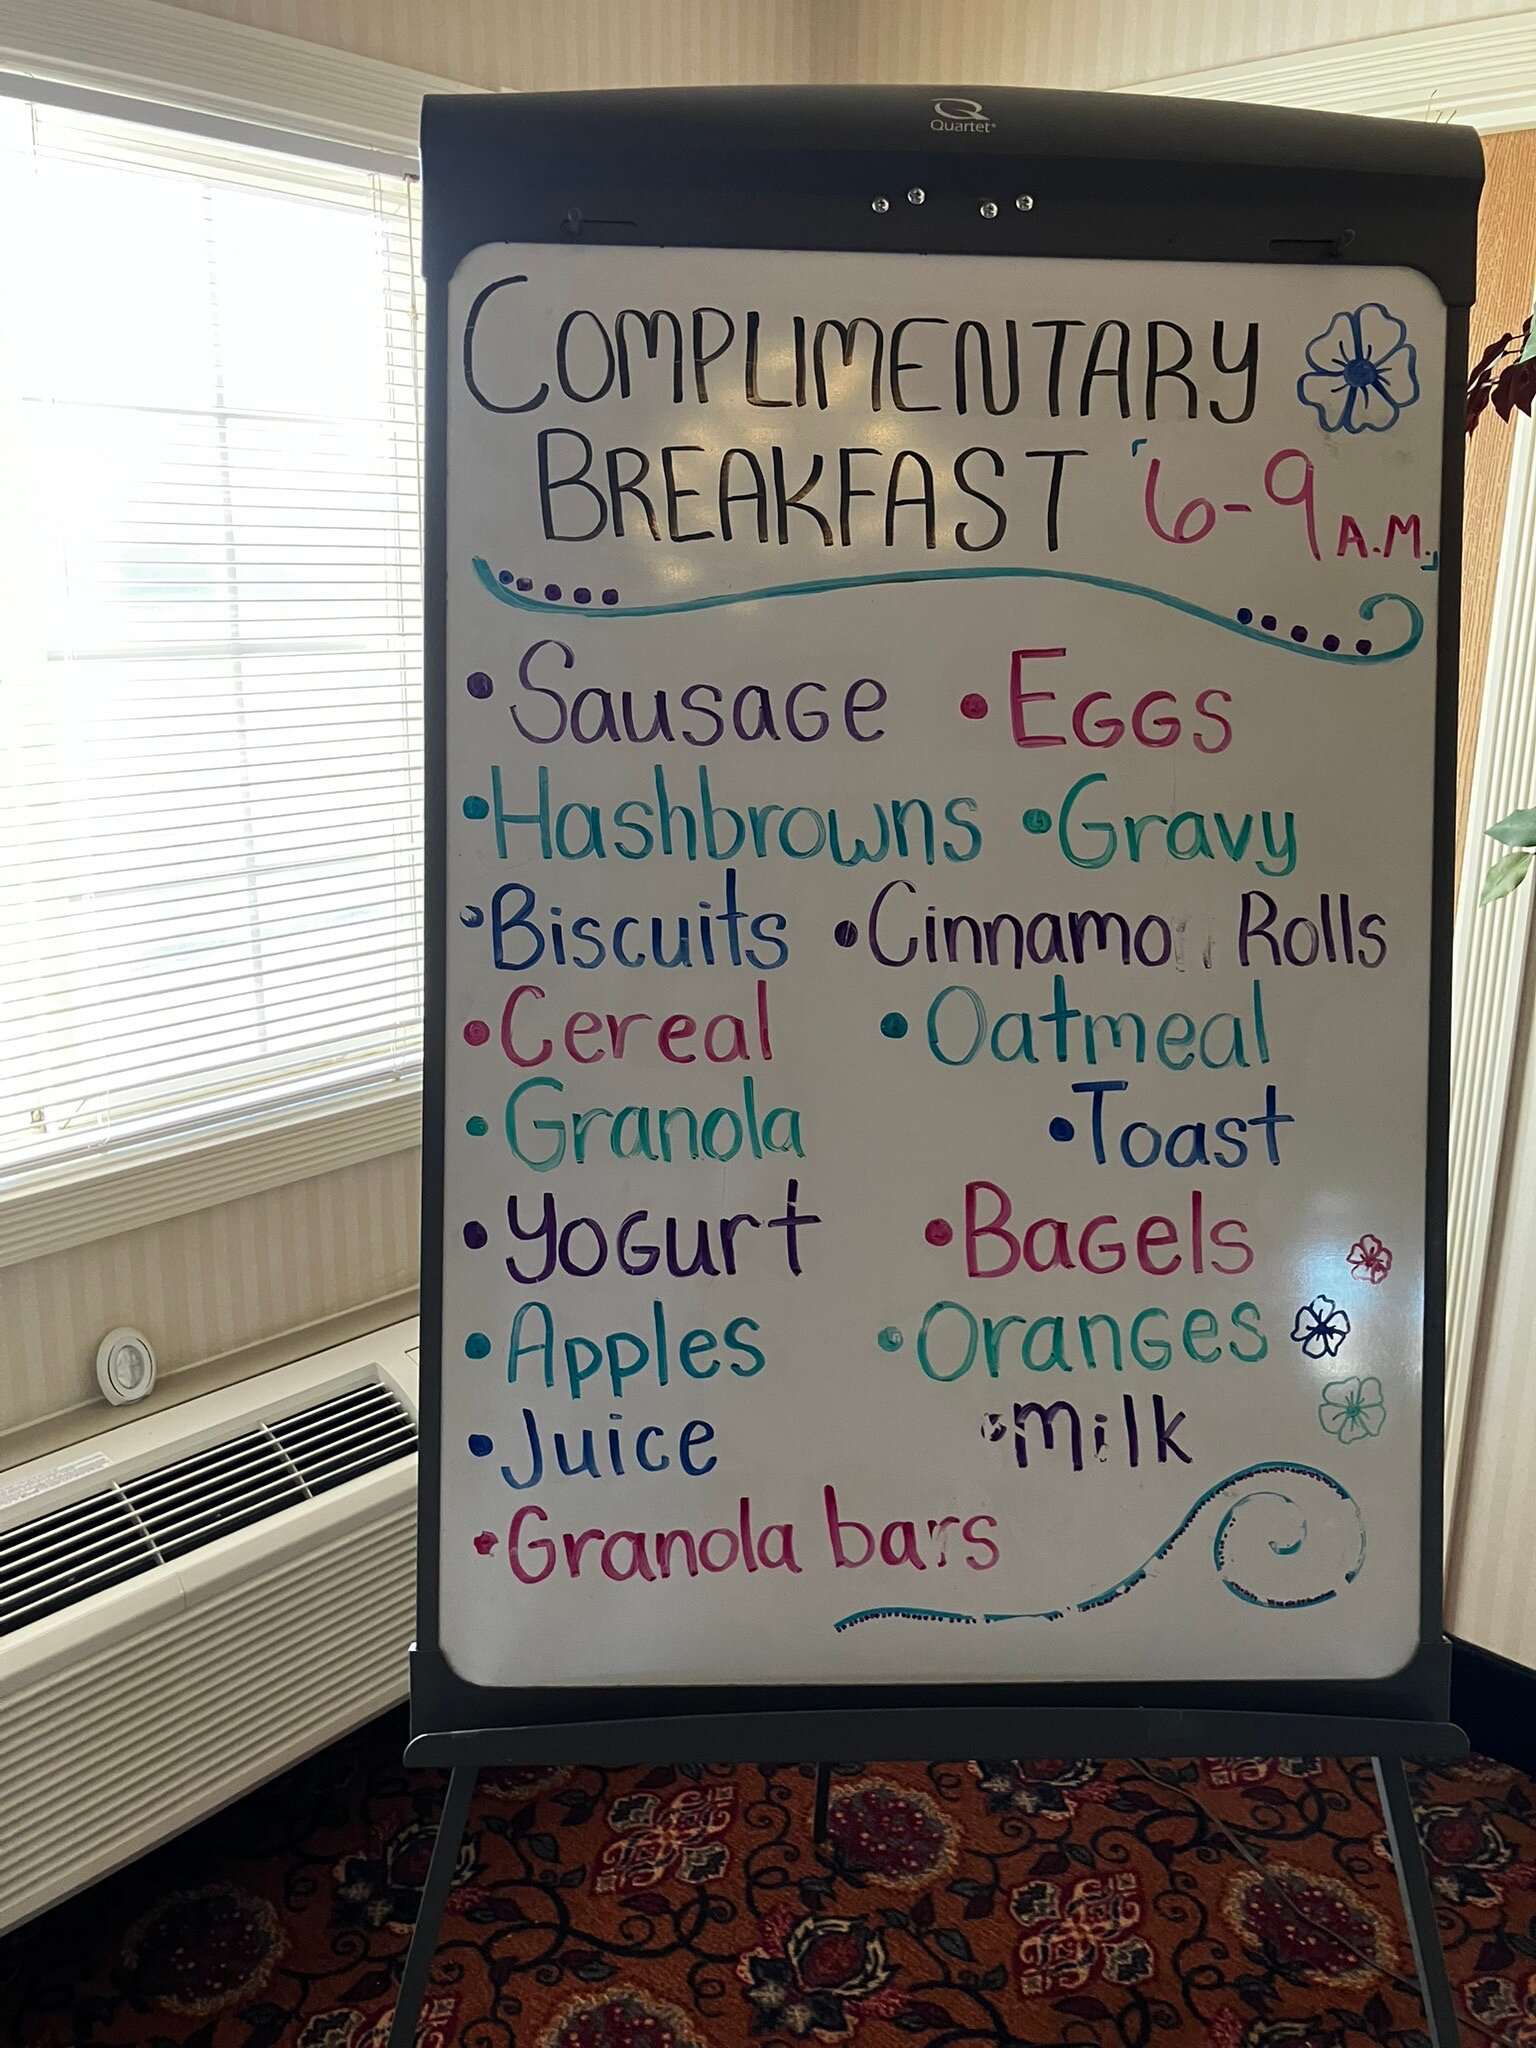 Quartet
COMPLIMENTARY
BREAKFAST 6-9 A.M.
• Sausage • Eggs
• Hashbrowns • Gravy
• Biscuits • Cinnamo Rolls
• Cereal • Oatmeal
• Granola • Toast
• Yogurt • Bagels
• Apples • Oranges
• Juice • Milk
• Granola bars